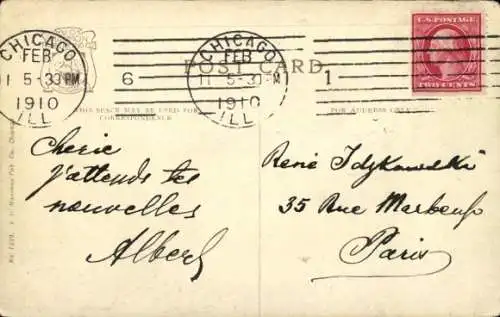 CHICAGO
FEB
11 5-30 PM
1910
ILL
6
CHICAGO
FEB
11 5-30 PM
1910
ILL
1
U.S. POSTAGE
TWO CENTS
POST CARD
THIS SPACE MAY BE USED FOR
CORRESPONDENCE
FOR ADDRESS ONLY
Cherie
j'attends tes
nouvelles
Albert
René Idzkowski
35 Rue Marbeuf
Paris